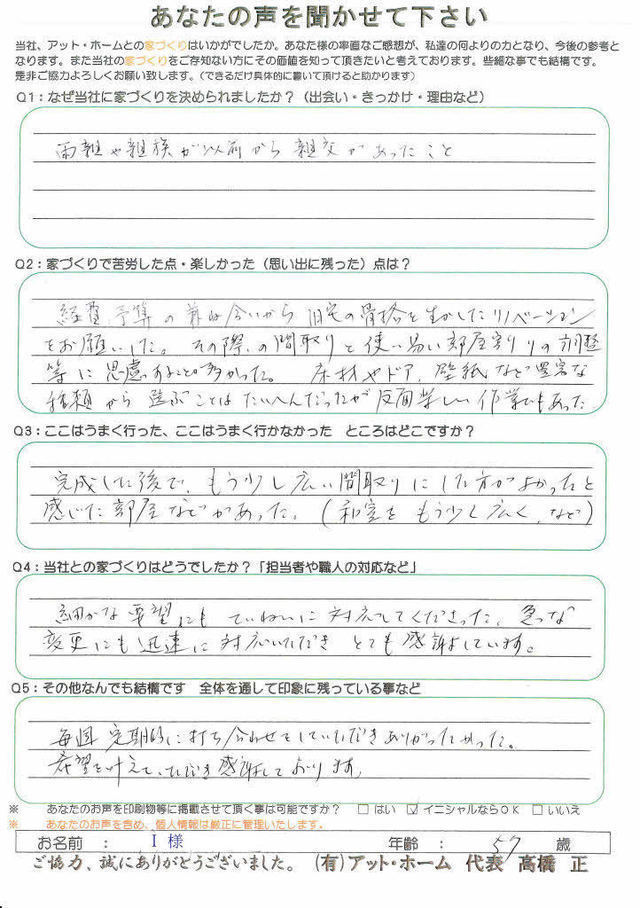 あなたの声を聞かせて下さい
当社、アット・ホームとの家づくりはいかがでしたか。あなた様の率直なご感想が、私達の何よりの力となり、今後の参考と
なります。また当社の家づくりをご存知ない方にその価値を知って頂きたいと考えております。些細な事でも結構です。
是非ご協力よろしくお願い致します。（できるだけ具体的に書いて頂けると助かります）
Q1：なぜ当社に家づくりを決められましたか？（出会い・きっかけ・理由など）
両親や親族が以前から親交があったこと
Q2：家づくりで苦労した点・楽しかった（思い出に残った）点は？
経費予算の兼ね合いから旧宅の骨格を生かしたリノベーション
をお願いした。その際の間取りと使い易い部屋割りの調整
等に思慮することが多かった。床材やドア、壁紙など豊富な
種類から選ぶことはたいへんだったが反面楽しい作業でもあった
Q3：ここはうまく行った、ここはうまく行かなかった　ところはどこですか？
完成した後で、もう少し広い間取りにした方がよかったと
感じた部屋などがあった。（和室をもう少し広く、など）
Q4：当社との家づくりはどうでしたか？「担当者や職人の対応など」
細かな要望にもていねいに対応してくださった。急な
変更にも迅速に対応いただきとても感謝しています。
Q5：その他なんでも結構です　全体を通して印象に残っている事など
毎週定期的に打ち合わせをしていただきありがたかった。
希望を叶えていただき感謝しております。
※　あなたのお声を印刷物等に掲載させて頂く事は可能ですか？　□ はい　☑ イニシャルならOK　□ いいえ
※　あなたのお声を含め、個人情報は厳正に管理いたします。
お名前　：　I 様　年齢　：　57　歳
ご協力、誠にありがとうございました。（有）アット・ホーム　代表　高橋　正